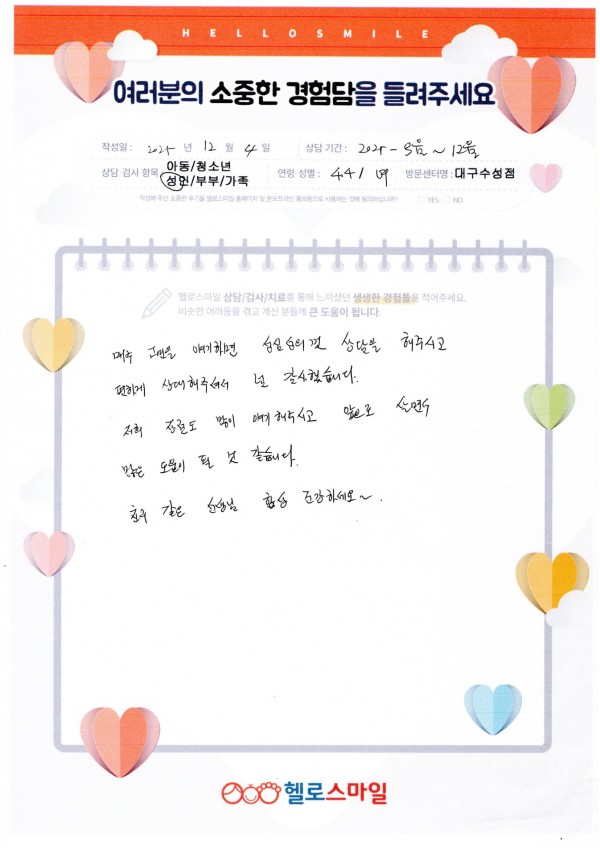 HELLOSMILE
여러분의 소중한 경험담을 들려주세요
작성일 : 2025 년 12 월 4 일 상담 기간 : 2025 - 9월 ~ 12월
상담 검사 항목 아동/청소년 성인/부부/가족 연령 성별 : 44 / 여 방문센터명 : 대구수성점
작성해 주신 소중한 후기를 헬로스마일 홈페이지 및 온오프라인 홍보용으로 사용하는 것에 동의하십니까? YES NO
헬로스마일 상담/검사/치료를 통해 느끼셨던 생생한 경험들을 적어주세요.
비슷한 어려움을 겪고 계신 분들께 큰 도움이 됩니다.
매주 고민을 얘기하면 성심성의껏 상담을 해주시고
편하게 상대해주셔서 넘 감사했습니다.
저희 진로도 많이 얘기해주시고 앞으로
많은 도움이 될 것 같습니다.
친구 같은 선생님 항상 건강하세요~.
헬로스마일